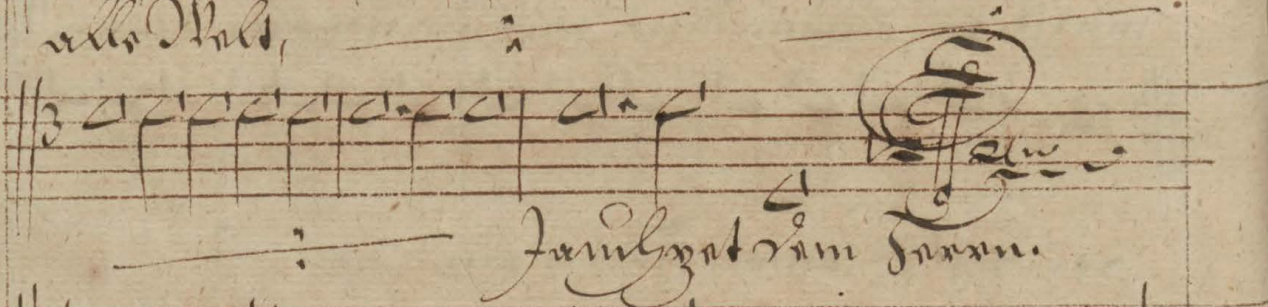 alle Welt,
3
Jauchzet dem Herrn.